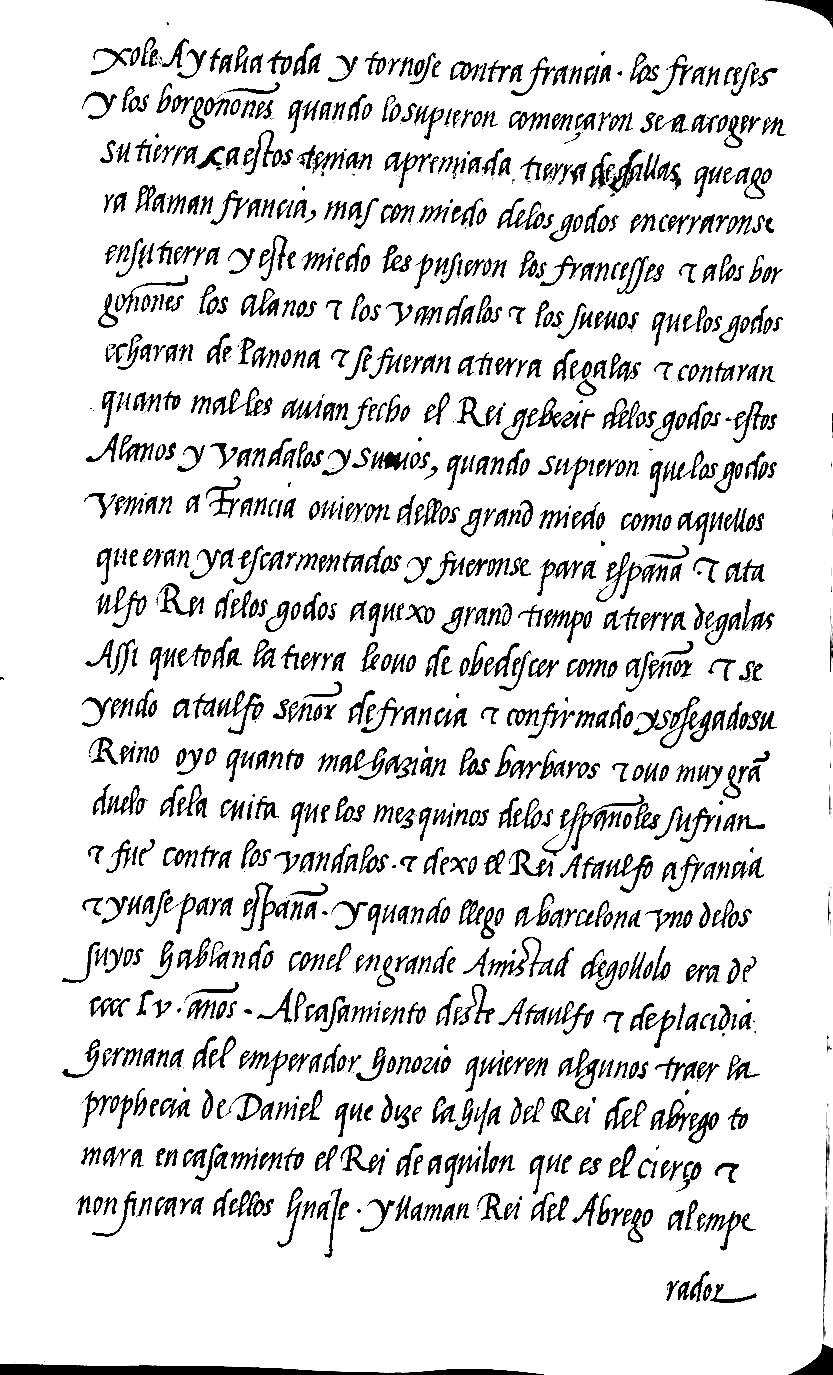 xole Aytalia toda y tornose contra francia. los franceses
y los borgoñones quando lo supieron començaron se a acoger en
su tierra ca estos tenian apremiada tierra de gallas que ago
ra llaman francia, mas con miedo delos godos encerraronse
ensu tierra y este miedo les pusieron los francesses τ alos bor
goñones los alanos τ los vandalos τ los sueuos que los godos
echaran de Panona τ se fueran a tierra de galas τ contaran
quanto mal les auian fecho el Rei geberit delos godos. estos
Alanos y Vandalos y Sueuos, quando supieron que los godos
venian a Francia ouieron dellos grand miedo como aquellos
que eran ya escarmentados y fueronse para españa. τ ata
ulfo Rei delos godos aquexo grand tiempo a tierra de galas
Assi que toda la tierra leouo de obedescer como a señor τ se
yendo ataulfo señor de francia τ confirmado y sosegado su
Reino oyo quanto mal hazian los barbaros τ ouo muy grã
duelo dela cuita que los mezquinos delos españoles sufrian
τ fue contra los vandalos. τ dexo el Rei Ataulfo a francia
τ yuase para españa. y quando llego a barcelona vno delos
suyos hablando conel en grande Amistad degollolo era de
cccc Lv. años. Al casamiento deste Ataulfo τ de placidia
hermana del emperador honorio quieren algunos traer la
prophecia de Daniel que dize la hija del Rei del abrego to
mara en casamiento el Rei de aquilon que es el cierço τ
non fincara dellos linaje. y llaman Rei del Abrego al empe
rador